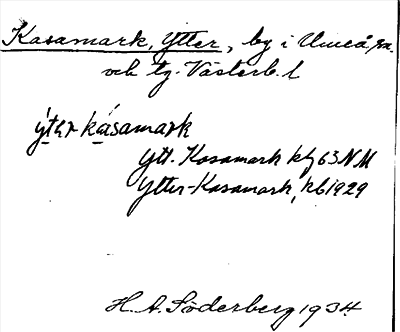 Kasamark, Ytter, by i Umeå sn.
och tg. Västerb. l
ýtər kásamark
Ytt. Kasamark kg 63 NM
Ytter-Kasamark, kb 1929
H. A. Söderberg 1934